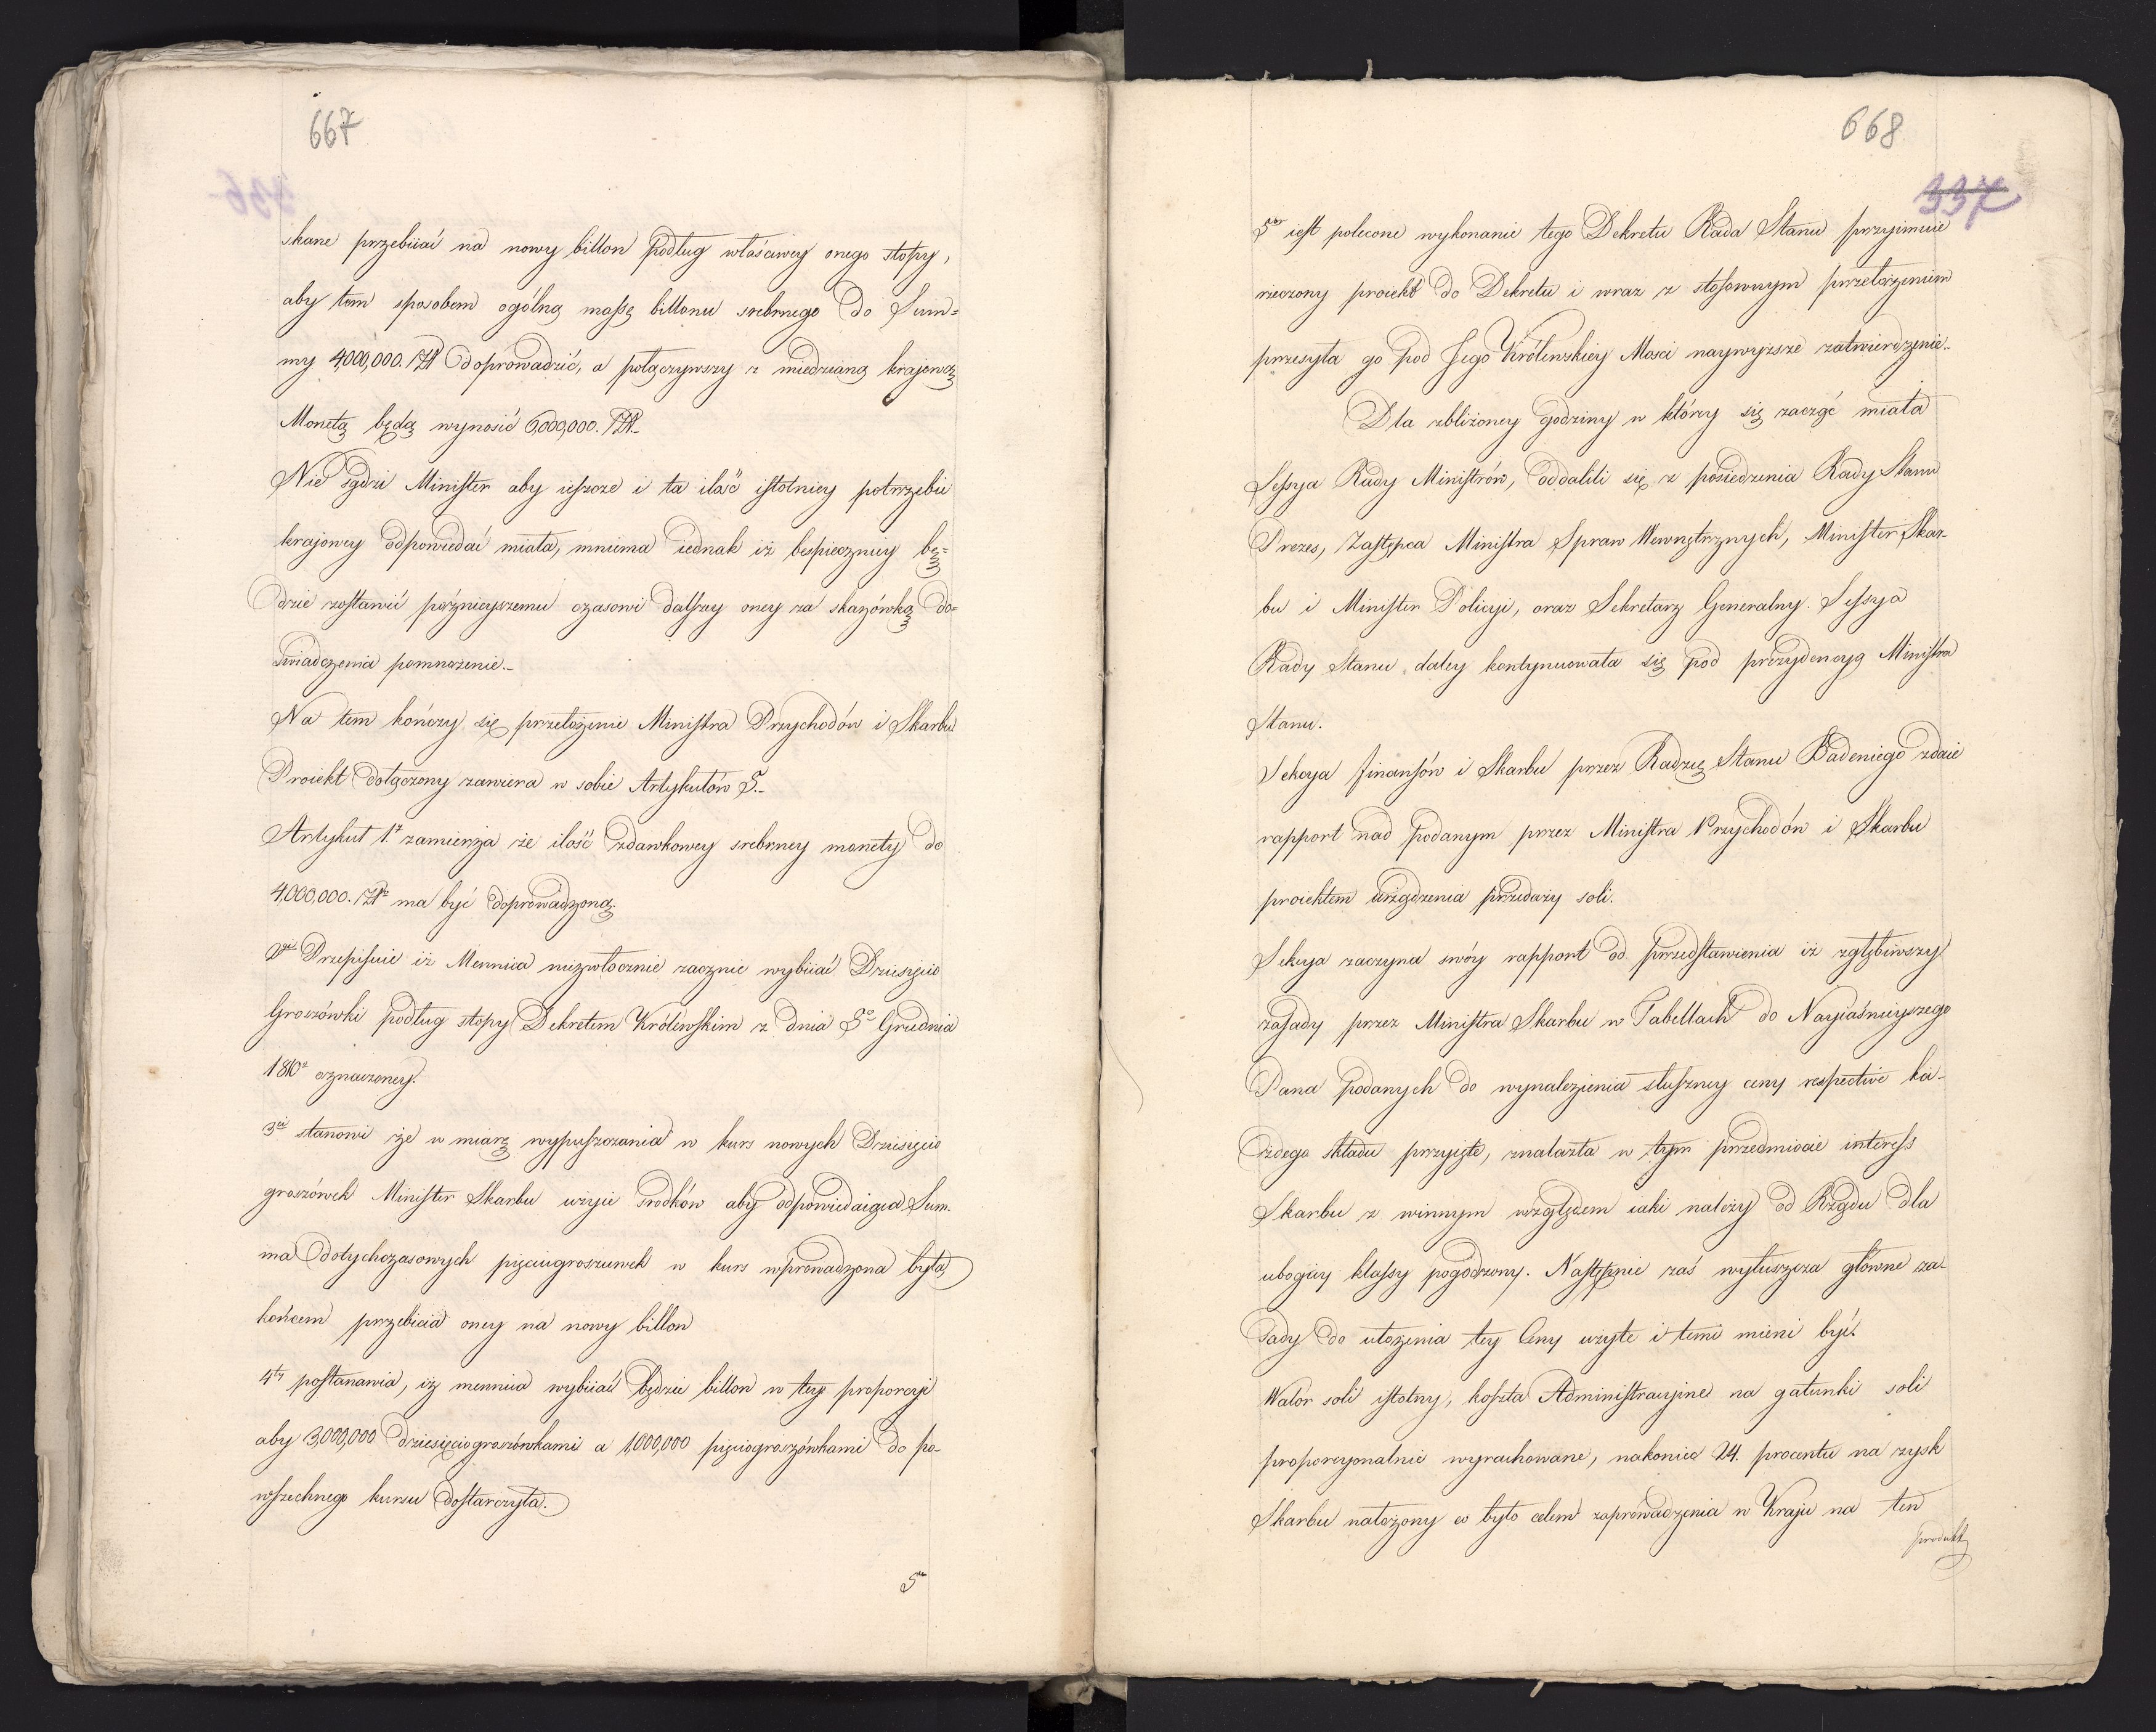 667
skane przebiiać na nowy billon podług właściwey onego stopy,
aby tem sposobem ogólną massę billonu srebrnego do Sum=
my 4,000,000. Złł doprowadzić, a połączywszy z miedzianą krajową
Monetą będą wynosić 6,000,000. Złł.
Nie sądzi Minister aby ieszcze i ta ilość istotniey potrzebie
krajowey odpowiedać miała, mniema iednak iż bespieczniey bę=
dzie zostawić późnieyszemu czasowi dalszy oney za skazówką do=
świadczenia pomnożenie.
Na tem kończy się przełożenie Ministra Przychodów i Skarbu
Proiekt dołączony zawiera w sobie Artykułów 5.
Artykuł 1. zamierza że ilość zdawkowey srebrney monety do
4,000,000. Złł ma być doprowadzoną.
2gi Przepisuie iż Mennica niezwłocznie zacznie wybiiać Dziesięcio
Groszówki podług stopy Dekretem Królewskim z dnia 5o Grudnia
1810 oznaczoney.
3ci stanowi że w miarę wypuszczania w kurs nowych Dziesięcio
groszówek Minister Skarbu użyie środków aby odpowiedaiąca Sum.
ma dotychczasowych pięciugroszuwek w kurs wprowadzona była
końcem przebicia oney na nowy billon
4ty postanawia, iż mennica wybiiać będzie billon w tey proporcyi
aby 3,000,000 dziesięciogroszówkami a 1,000,000 pięciogroszówkami do po-
wszechnego kursu dostarczyła.
5
668
337
5 iest polecone wykonanie tego Dekretu Rada Stanu przyimuie
rzeczony proiekt do Dekretu i wraz z stosownym przełożeniem
przesyła go pod Jego Królewskiey Mosci naywyższe zatwierdzenie.
Dla zbliżoney godziny w którey się zacząć miała
Sessya Rady Ministrów, oddalili się z posiedzenia Rady Stanu
Prezes, Zastępca Ministra Spraw Wewnętrznych, Minister Skar-
bu i Minister Policyi, oraz Sekretarz Generalny. Sessya
Rady Stanu daley kontynuowała się pod prezydencyą Ministra
Stanu.
Sekcya finansów i Skarbu przez Radzcę Stanu Badeniego zdaie
rapport nad podanym przez Ministra Przychodów i Skarbu
proiektem urządzenia przedaży soli.
Sekcya zaczyna swóy rapport od przedstawienia iż zgłębiwszy
zasady przez Ministra Skarbu w Tabellach do Nayiaśnieyszego
Pana podanych do wynalezienia słuszney ceny respective ka-
żdego składu przyięte, znalazła w tym przedmiocie interess
Skarbu z winnym względem iaki należy od Rządu dla
ubogiey klassy pogodzony. Następnie zaś wyłuszcza główne za-
sady do ułożenia tey Ceny użyte i temi mieni być.
Walor soli istotny, koszta Administracyine na gatunki soli
proporcyonalnie wyrachowane, nakoniec 24. procentu na zysk
Skarbu nałożony co było celem zaprowadzenia w Kraju na ten
produkt